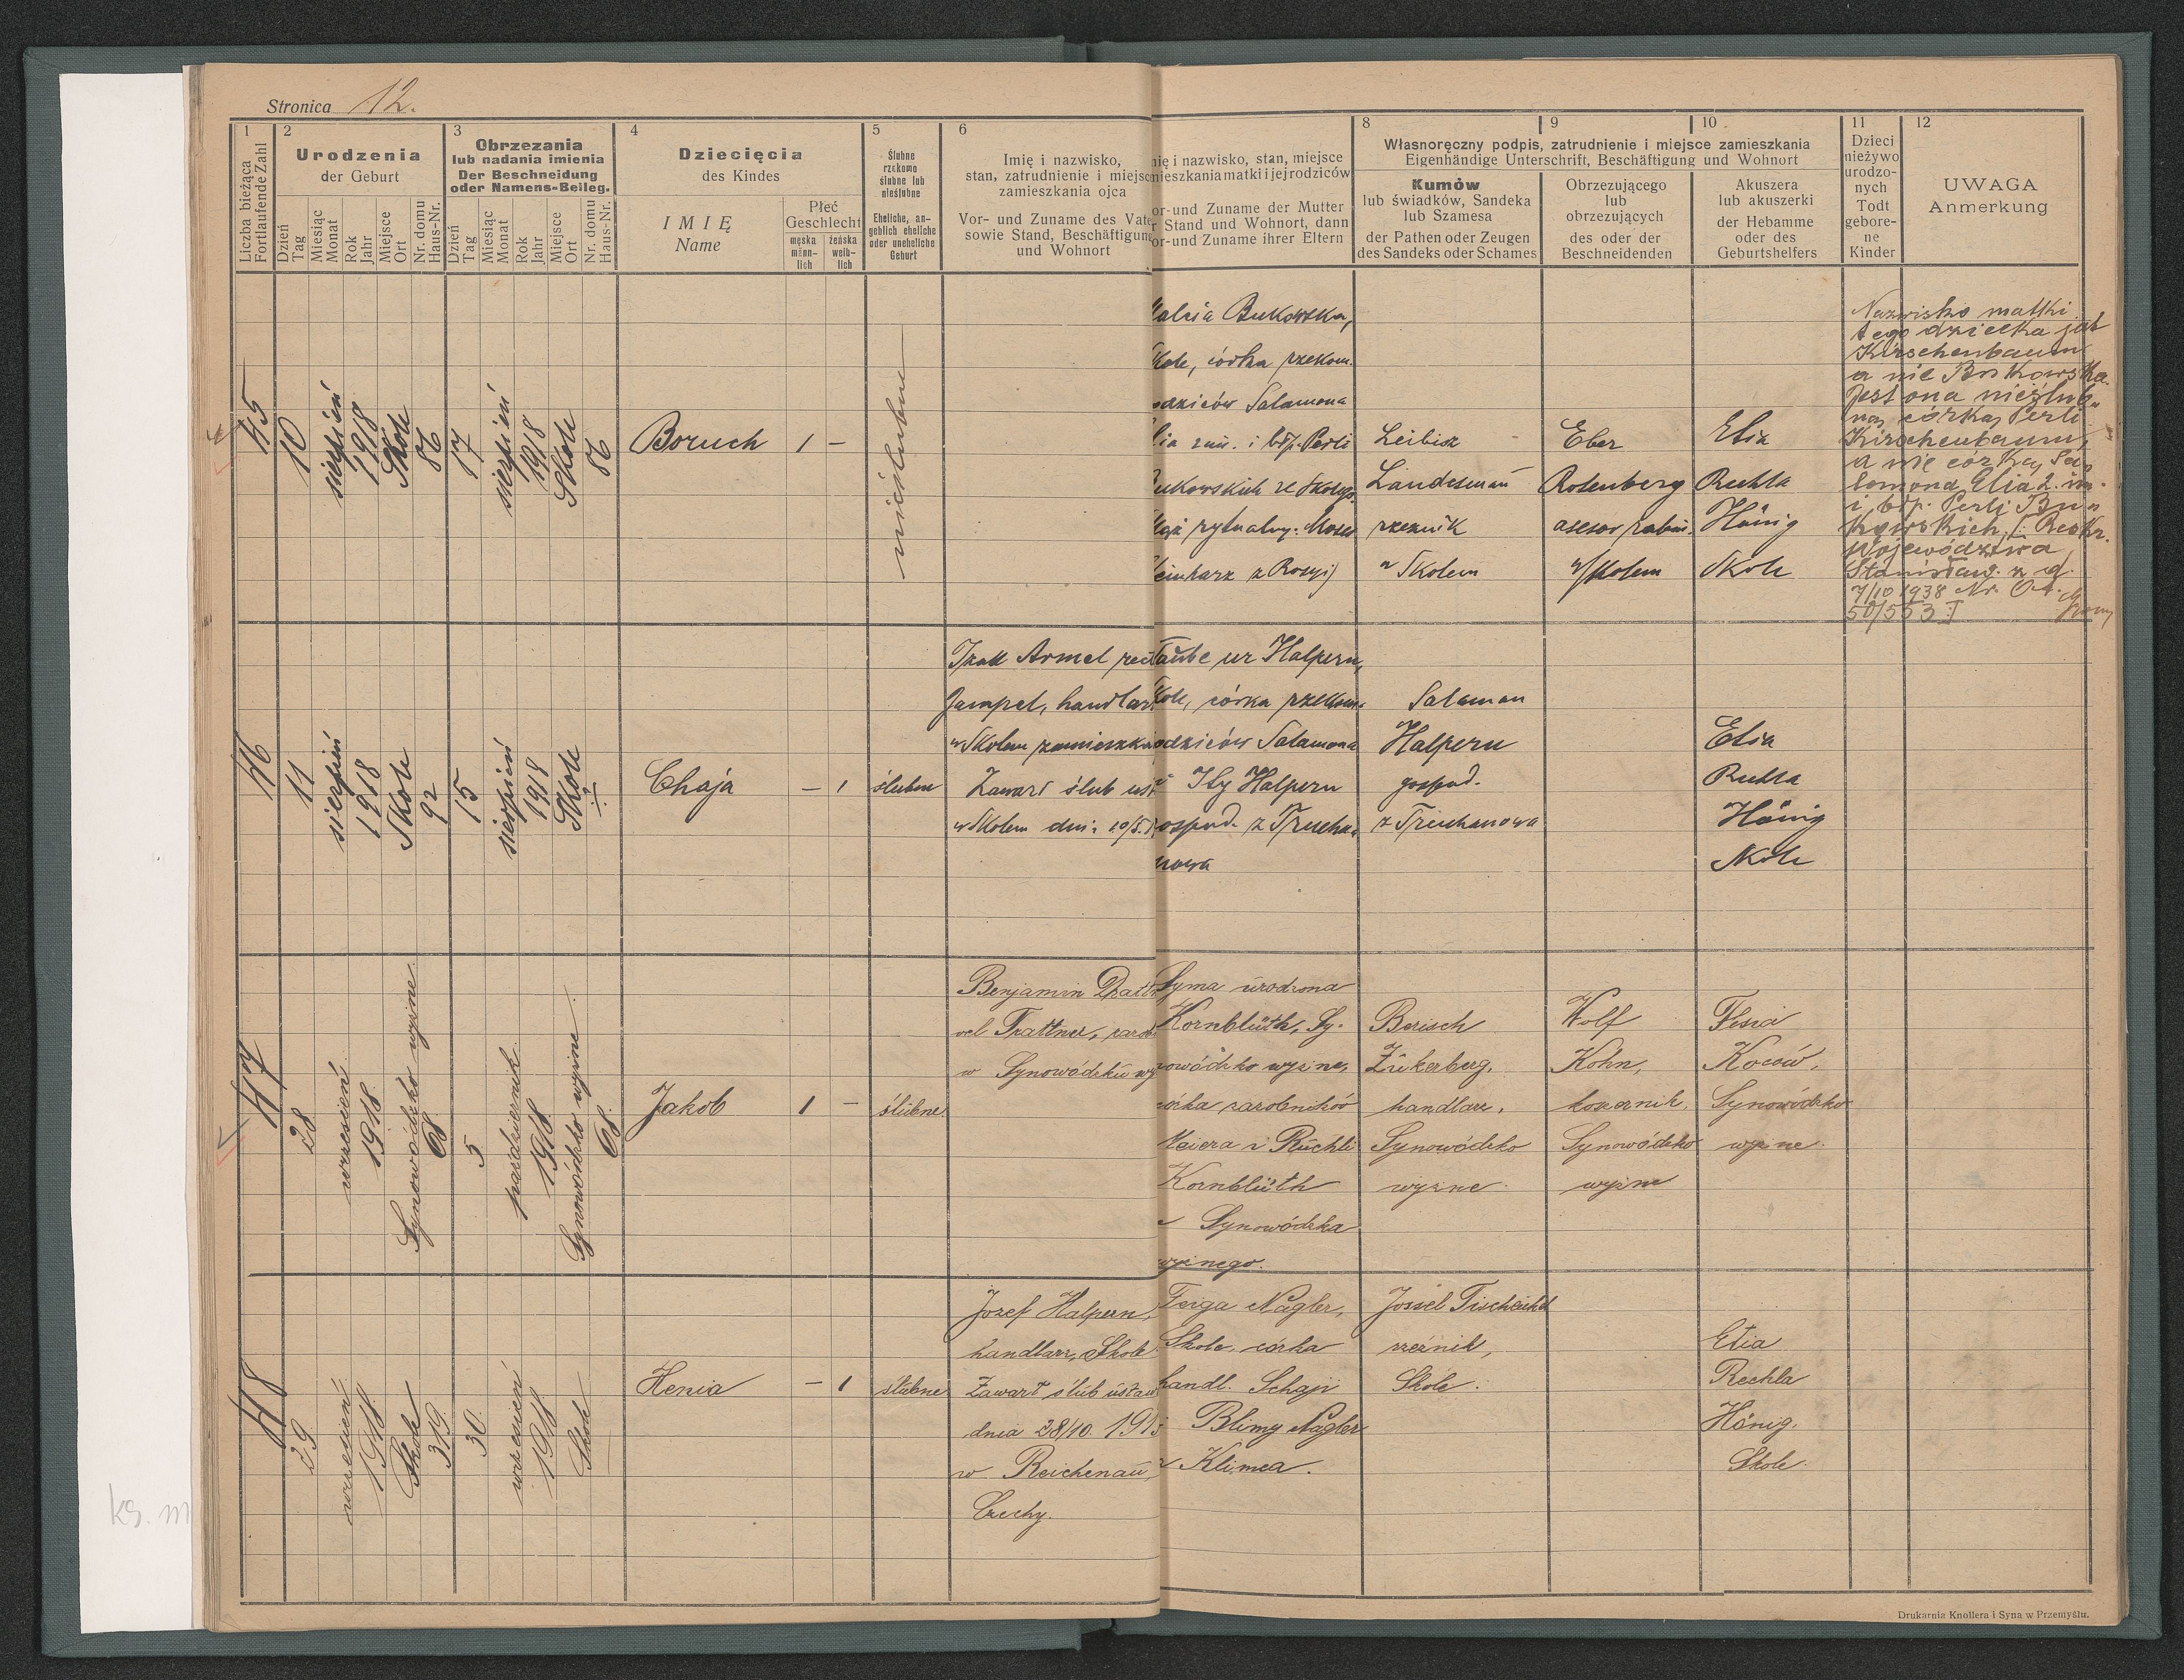 Stronica 12.
1
Liczba bieżąca
Fortlaufende Zahl
2
Urodzenia
der Geburt
Dzień
Tag
Miesiąc
Monat
Rok
Jahr
Miejsce
Ort
Nr. domu
Haus-Nr.
3
Obrzezania
lub nadania imienia
Der Beschneidung
oder Namens-Beileg.
Dzień
Tag
Miesiąc
Monat
Rok
Jahr
Miejsce
Ort
Nr. domu
Haus-Nr.
4
Dziecięcia
des Kindes
IMIĘ
Name
Płeć
Geschlecht
męska
männ-
lich
żeńska
weib-
lich
5
Ślubne
rzekomo
ślubne lub
nieślubne
Eheliche, an-
geblich eheliche
oder uneheliche
Geburt
6
Imię i nazwisko,
stan, zatrudnienie i miejsc
zamieszkania ojca
Vor- und Zuname des Vate
sowie Stand, Beschäftigung
und Wohnort
nię i nazwisko, stan, miejsce
mieszkania matki i jej rodziców
or- und Zuname der Mutter
r Stand und Wohnort, dann
or- und Zuname ihrer Eltern
Własnoręczny podpis, zatrudnienie i miejsce zamieszkania
Eigenhändige Unterschrift, Beschäftigung und Wohnort
8
Kumów
lub świadków, Sandeka
lub Szamesa
der Pathen oder Zeugen
des Sandeks oder Schames
9
Obrzezującego
lub
obrzezujących
des oder der
Beschneidenden
10
Akuszera
lub akuszerki
der Hebamme
oder des
Geburtshelfers
11
Dzieci
nieżywo
urodzo-
nych
Todt
gebore-
ne
Kinder
12
UWAGA
Anmerkung
45
10
sierpień
1918
Skole
86
17
sierpień
1918
Skole
86
Boruch
1
—
nieślubne
alcia Bukowska,
kole, córka rzekom.
odziców Salamona
lia zaśl. i bśp. Perli
ukowskich ze Skolego
ąż rytualny: Moses
einharz z Rosyi)
Leibisz
Landesman
rzeznik
w Skolem
Eber
Rotenberg
asesor rabin.
w Skolem
Etia
Ruchla
Hönig
Skole
Nazwisko matki
tego dziecka jest
Kirschenbaum
a nie Bukowska.
Jest ona nieślub-
ną córką Perli
Kirschenbaum,
a nie córką Sa-
lomona Elia 2. im.
i bśp. Perli Bu-
kowskich, /: Reskr.
Województwa
Stanisław. z d.
7/10 1938 Nr.
50/553 I
46
11
sierpień
1918
Skole
92
15
sierpień
1918
Skole
Chaja
—
1
ślubne
Izak Armel
Jampel, handlarz
w Skolem zamieszk
Zawarł ślub ust
w Skolem dnia 20/5.
Taube ur Halpern,
Skole, córka rzekom.
odziców Salamona
i Ity Halpern
gospod. z Trucha-
nowa
Salamon
Halpern
gospod.
z Truchanowa
Etia
Ruchla
Hönig
Skole
47
28
wrzesień
1918
Synowódzko wyżne
68
5
pazdziernik
1918
Synowódzko wyżne
68
Jakob
1
—
ślubne
Benjamin Dratt
vel Trattner, zarob
w Synowódzku wy
Syma urodzona
Kornblüth, Sy-
nowódzko wyżne,
córka zarobników
Meiera i Ruchli
Kornblüth
z Synowódzka
wyżnego.
Berisch
Zukerberg,
handlarz,
Synowódzko
wyżne
Wolf
Kohn,
koszernik,
Synowódzko
wyżne
Fesia
Koców,
Synowódzko
wyżne
48
29
wrzesień
1918
Skole
319
30
wrzesień
1918
Skole
Henia
—
1
ślubne
Jozef Halpern,
handlarz, Skole
Zawarł ślub ustaw
dnia 28/10. 1915
w Reichenau,
Czechy.
Feiga Nagler,
Skole, córka
handl. Schaji
Blimy Nagler
z Klimca.
Jossel
rzeźnik,
Skole.
Etia
Rechla
Hönig.
Skole.
ks. m
Drukarnia Knollera i Syna w Przemyślu.